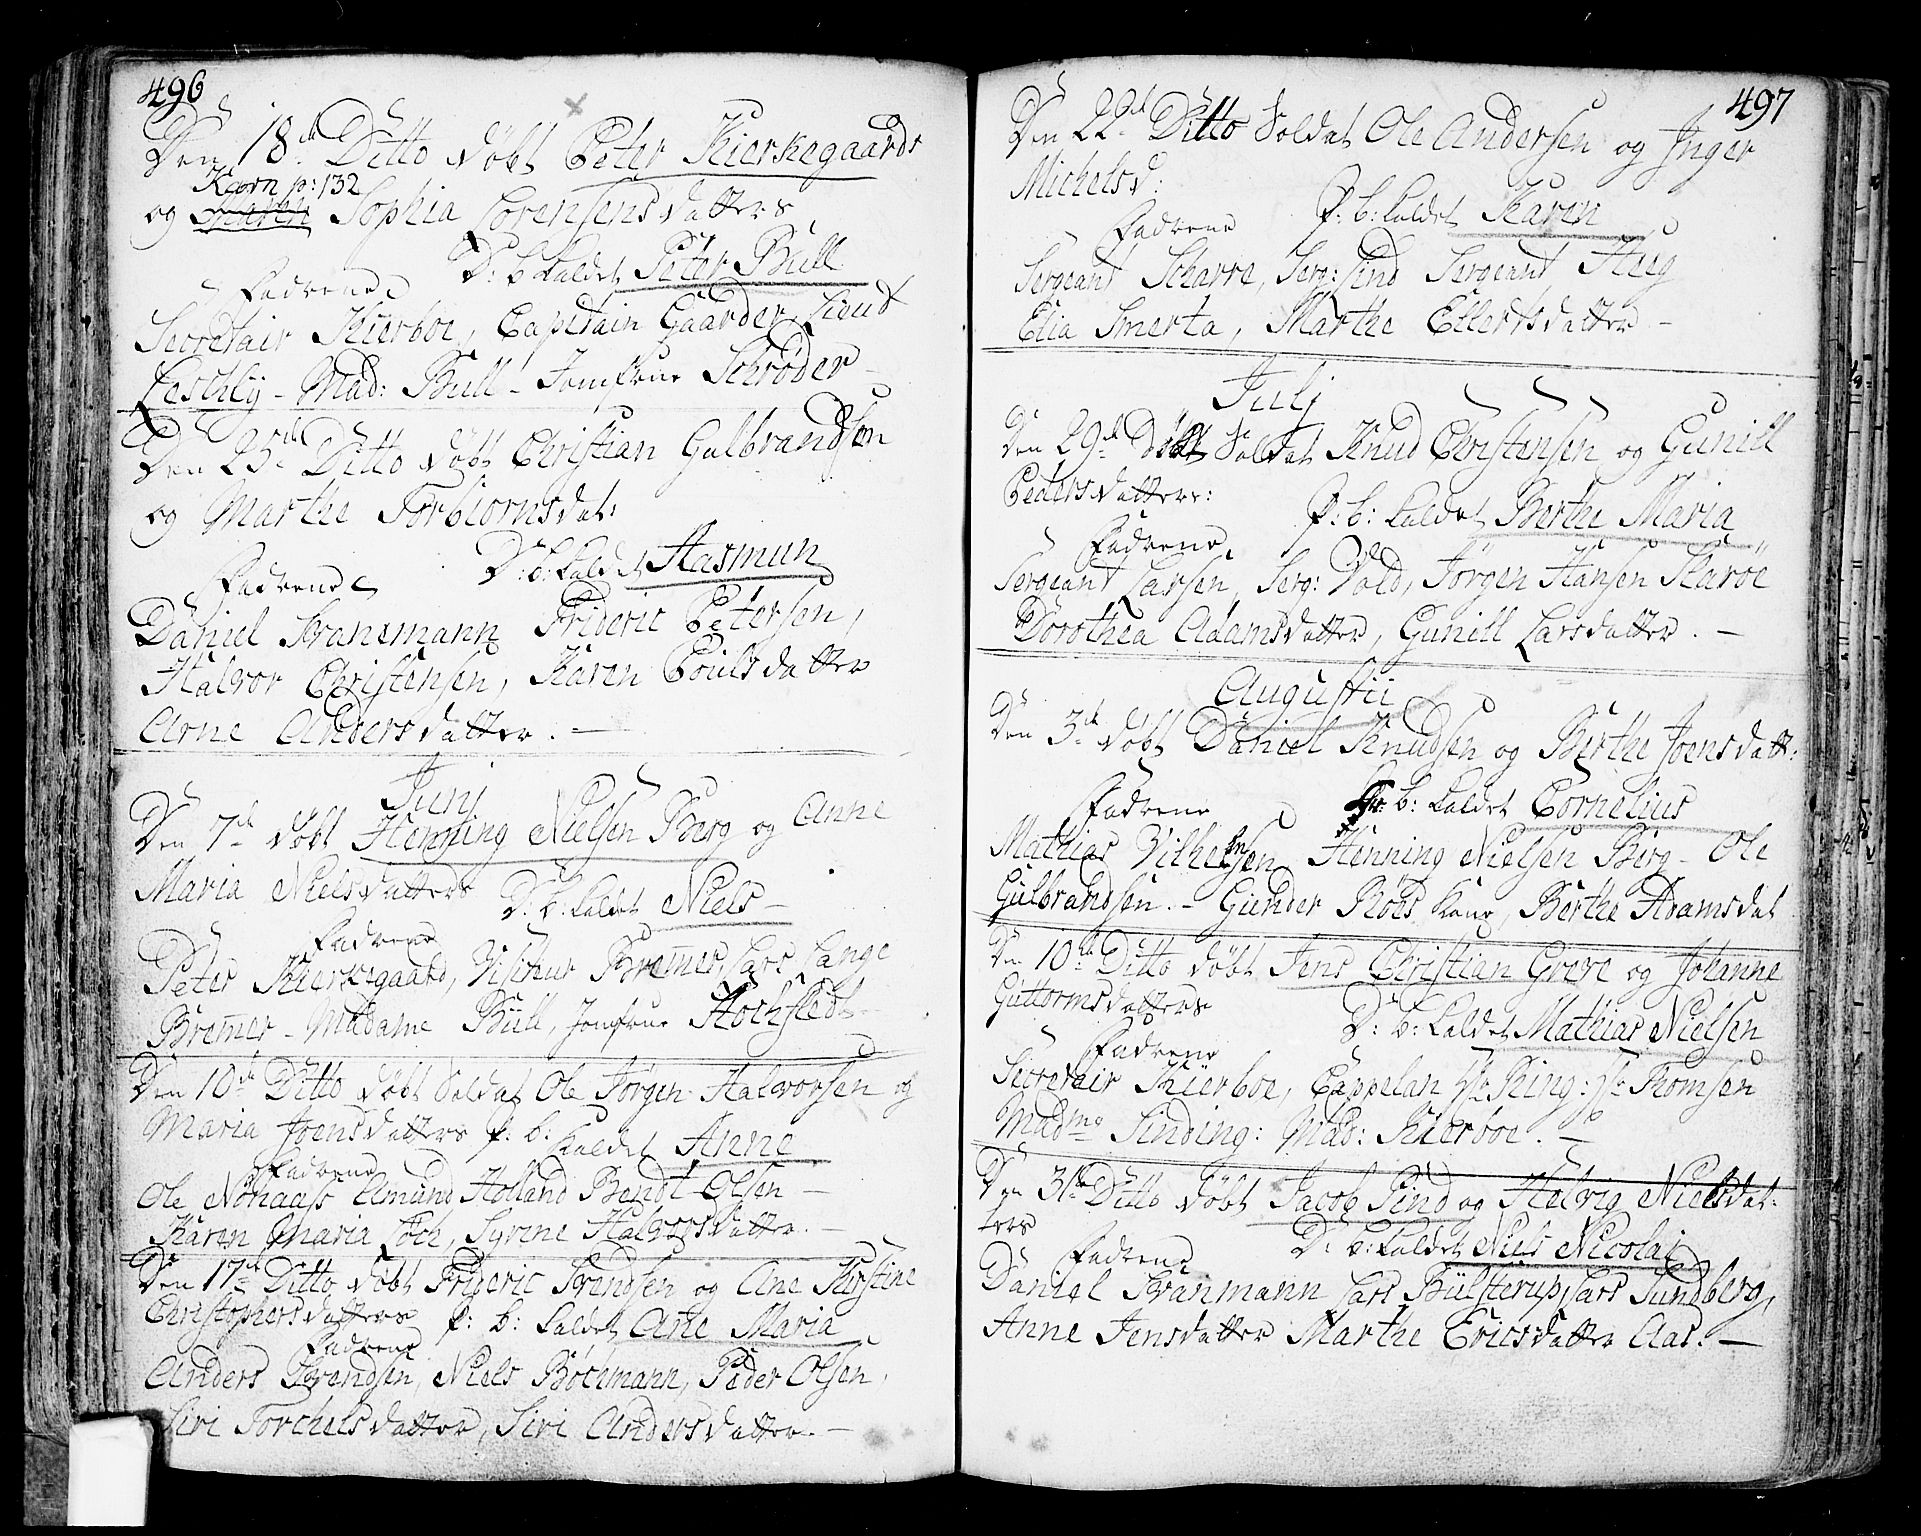 496
Den 18de Ditto döbt Peter Kierkegaards
Karn p: 132
og Maren Sophia Lorensensdatters
D: b: kaldet Peter Bull
Fadrene
Secretair Kierboe, Capitain Gaarder, Lieut
Leschly - Mad: Bull - Jomfrue Schrøder -
Den 25de Ditto döbt Christian Gulbrandsen
og Marthe Torbiornsdat:
D: b: kaldet Aasmun
Fadrene
Daniel Svansmann Frideric Petersen,
Halvor Christensen, Karen Poulsdatter
Arne Andersdatter. -
Junj
Den 7de döbt Henning Nielsen Berg og Anne
Maria Nielsdatters D: b: kaldet Niels -
Fadrene
Peter Kierkegaard, Visiteur Bremer, Lars Lange
Bremer - Madame Bull, Jomfrue Hochstedt -
Den 10de Ditto döbt Soldat Ole Jørgen Halvorsen og
Maria Joensdatters P: b: kaldet Anne
Fadrene
Ole Amund Holland Bendt Olsen -
Karen Maria Syrine Halvorsdatter. -
Den 17de Ditto döbt Frideric Svendsen og Ane Kirstine
Christophersdatters P: b: kaldet Ane Maria
Fadrene
Anders Svendsen, Niels Bochmann, Peder Olsen,
Siri Torchelsdatter, Siri Andersdatter. -
497
Den 22de Ditto Soldat Ole Andersen og Inger
Michelsd:
P: b: kaldet Karen
Fadrene
Sergeant Scharre, Serg: Lind Sergeant Hug
Elia Smerta, Marthe Ellertsdatter -
Julj
Den 29de Döbt Soldat Knud Christensen og Gunill
Pedersdatters:
P: b: kaldet Berthe Maria
Fadrene
Sergeant Larsen, Serg: Vold, Jörgen Hansen Skaröe
Dorothea Adamsdatter, Gunill Larsdatter. -
Augustii
Den 3de döbt Daniel Knudsen og Berthe Joensdatt:
b: kaldet Cornelius
Fadrene
Mathias Vilhelmsen Henning Nielsen Berg - Ole
Gulbrandsen. - Gunder Röeds Kone, Berthe Adamsdat
Den 10de Ditto döbt Jens Christian Greve og Johanne
Guttormsdatters
D: b: kaldet Mathias Nielsen
Fadrene
Secretair Kierboe, Cappelan Hr Ring: Hr Thomsen
Madme Sinding: Mad: Kierboe. -
Den 31te Ditto döbt Jacob Lind og Helvig Nielsdat:
ters
D: b: kaldet Niels Nicolai
Fadrene
Daniel Svanmann Lars Bülsterup, Lars Sundberg,
Anne Jensdatter Marthe Ericsdatter Aas. -